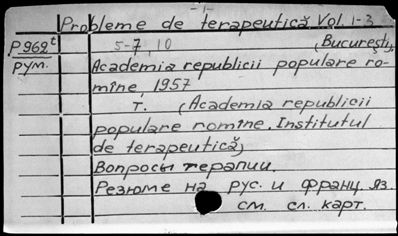 -1-
Probleme de terapeutică Vol. 1-3
5-7, 10 (Bucureşti,
P962t
Рум.
Academia republicii populare ro-
mîne, 1957
т. (Academia republicii
populare romîne. Institutul
de terapeutică)
Вопросы терапии.
Резюме на рус. и франц. яз.
см. сл. карт.